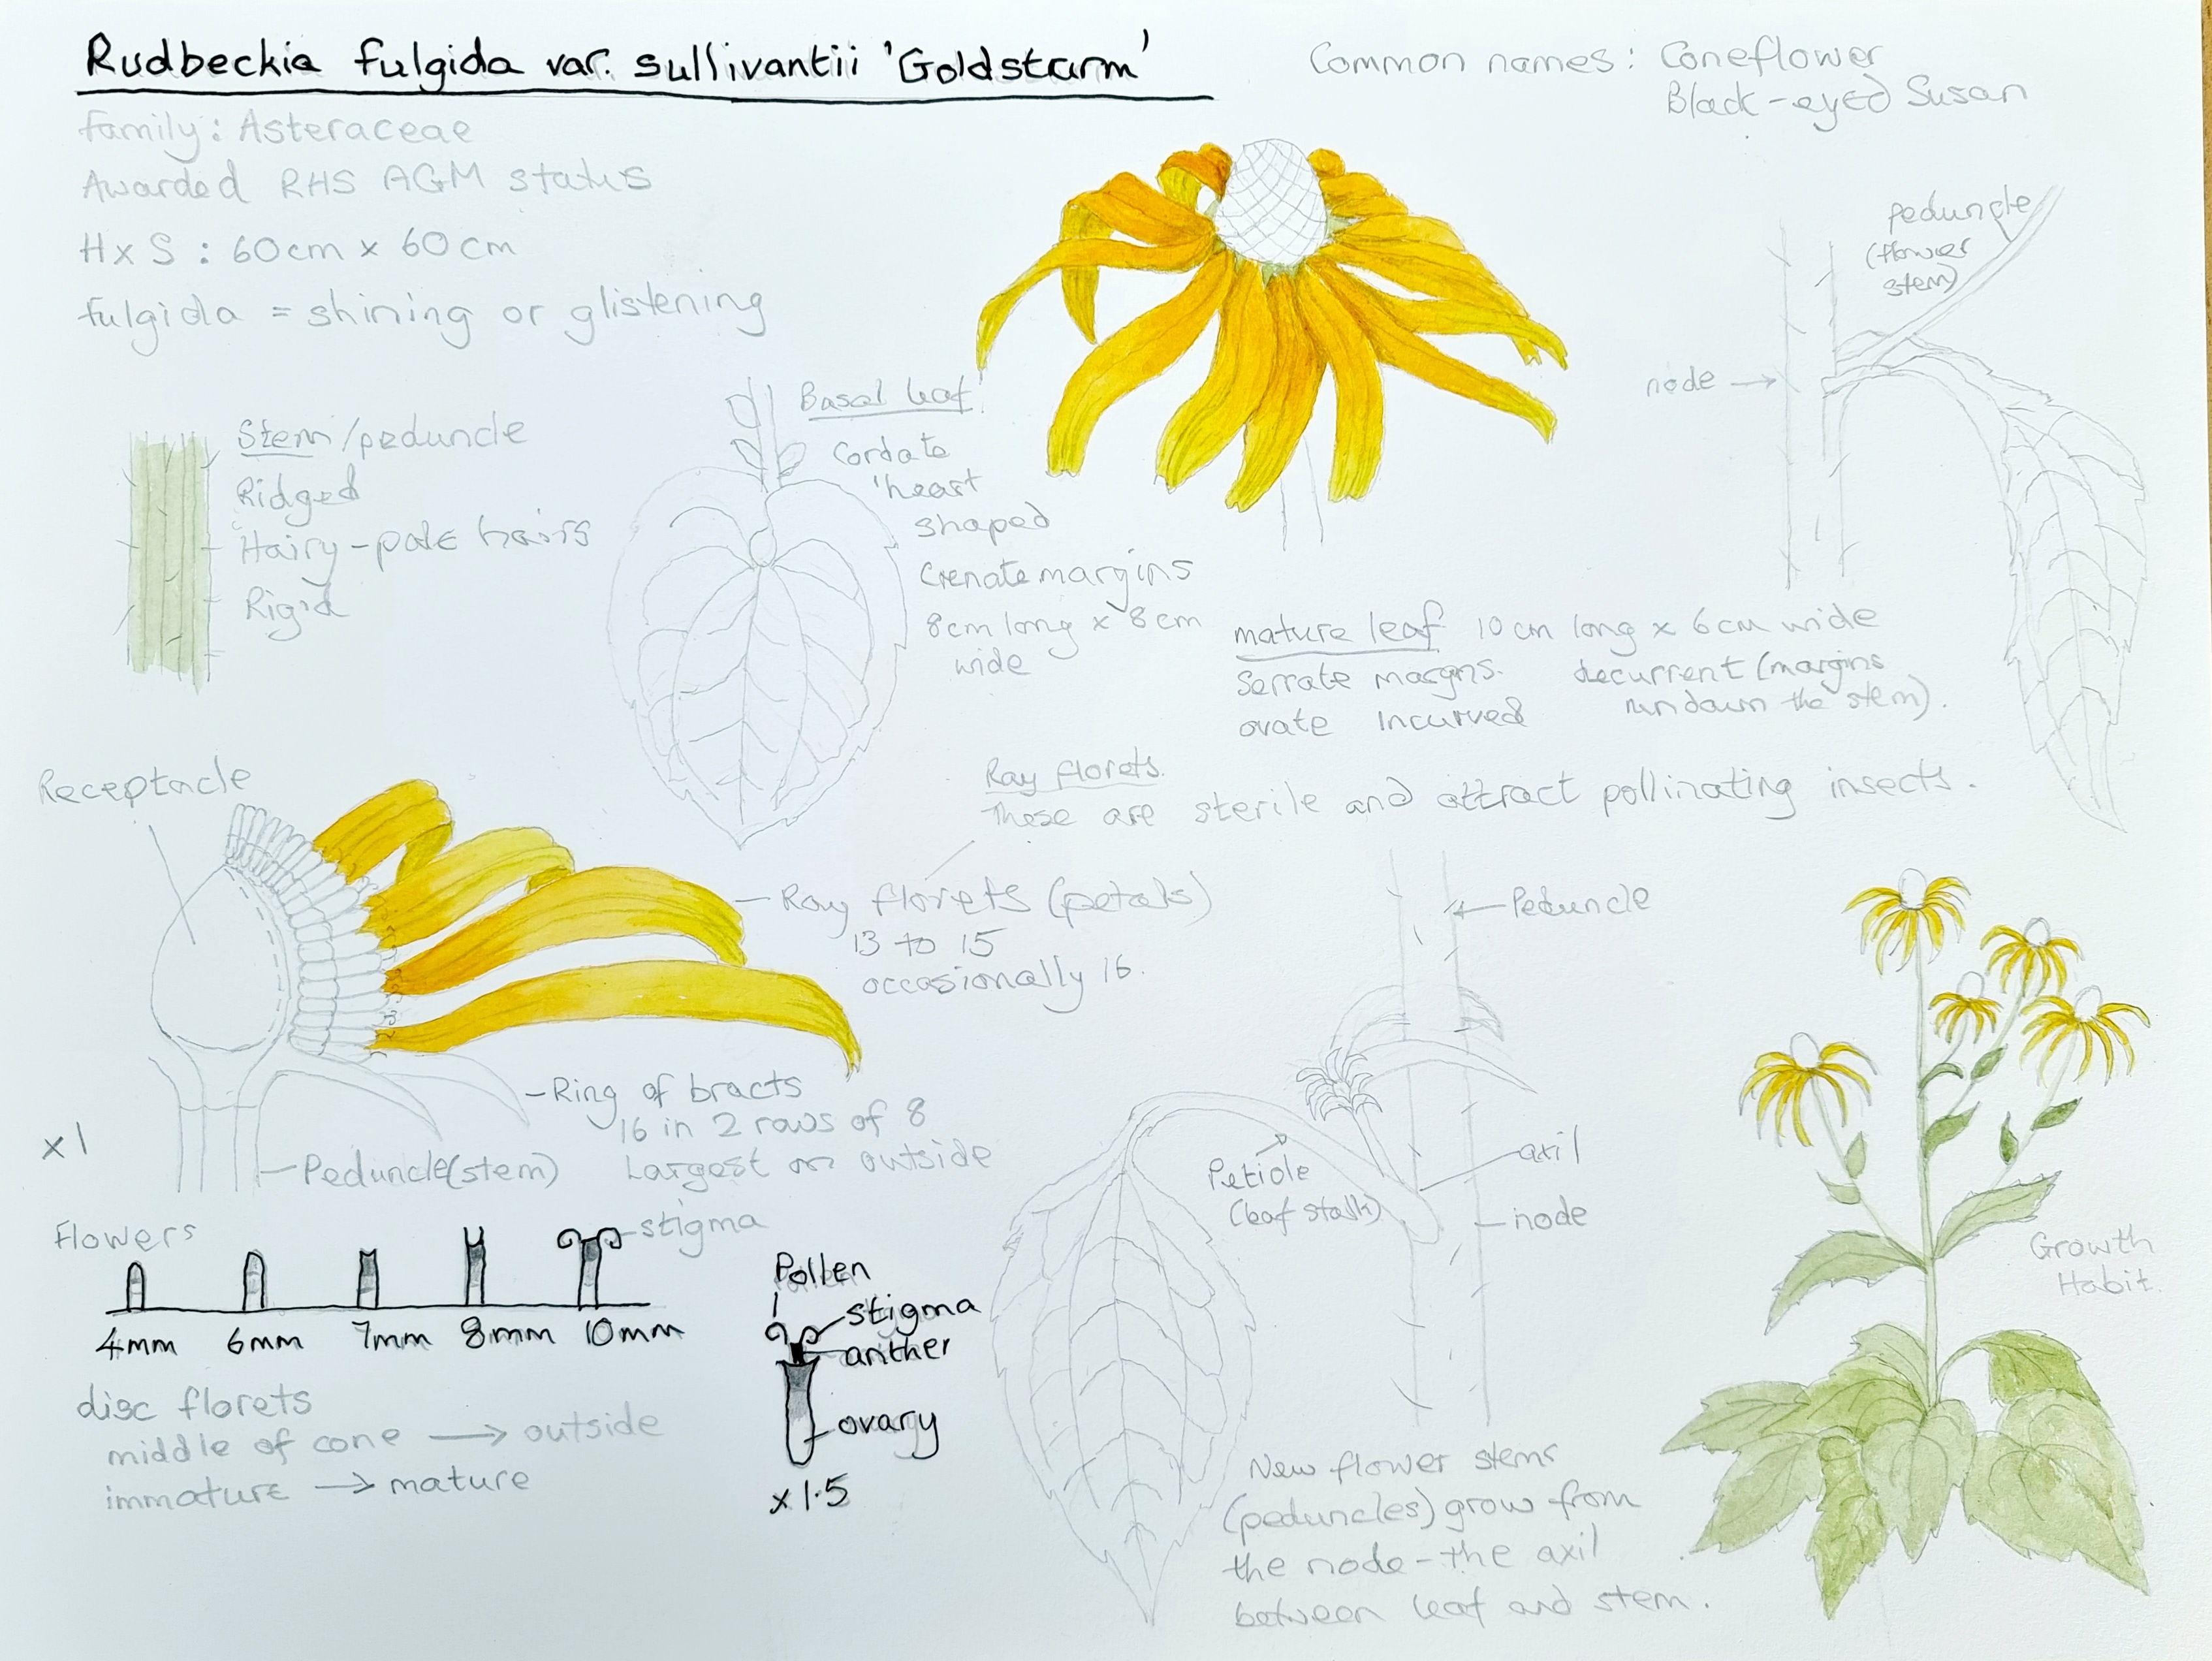 Rudbeckia fulgida var. sullivantii 'Goldsturm'
Common names: Coneflower
Black-eyed Susan
Family: Asteraceae
Awarded RHS AGM status
H x S : 60cm x 60cm
fulgida = shining or glistening
peduncle
(flower
stem)
node
Stem/peduncle
Ridged
Hairy - pale hairs
Rigid
Basal leaf
Cordate
'heart
shaped
Crenate margins
8cm long x 8cm
wide
mature leaf 10cm long x 6cm wide
Serrate margns. decurrent (margins
ovate incurved run down the stem).
Ray florets.
These are sterile and attract pollinating insects.
Receptacle
Ray florets (petals)
13 to 15
occasionally 16.
Ring of bracts
16 in 2 rows of 8
Largest on outside
x1
Peduncle(stem)
Peduncle
Petiole
(leaf stalk)
axil
node
Growth
Habit.
Flowers
stigma
4mm 6mm 7mm 8mm 10mm
disc florets
middle of cone → outside
immature → mature
Pollen
stigma
anther
ovary
x1.5
New flower stems
(peduncles) grow from
the node - the axil
between leaf and stem.